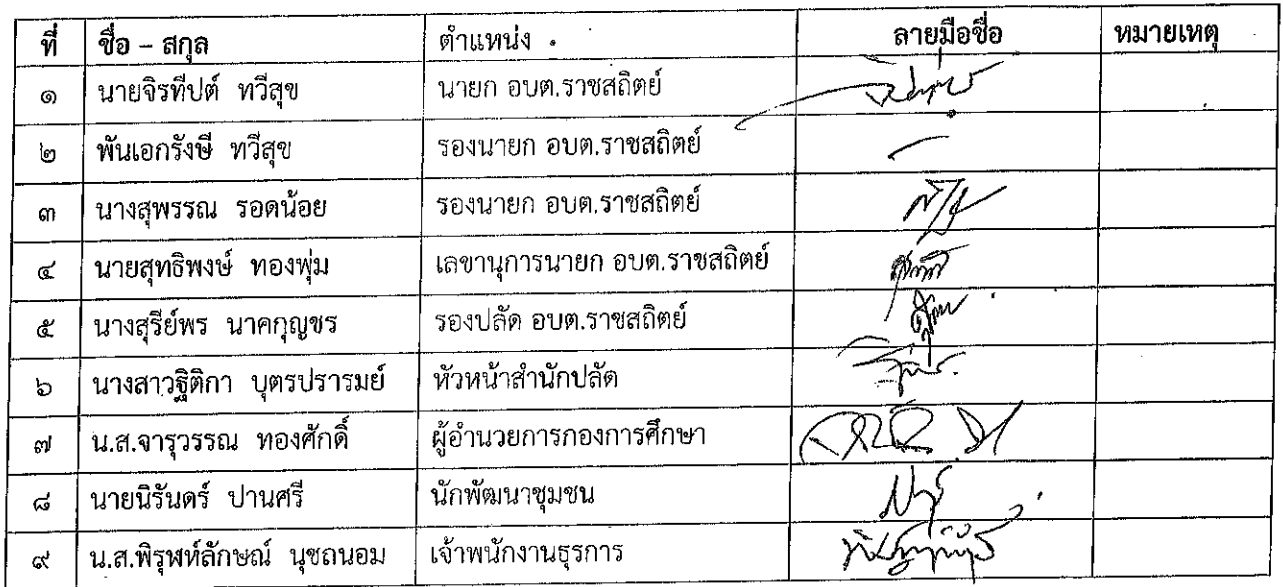 ที่ ชื่อ – สกุล ตำแหน่ง ลายมือชื่อ หมายเหตุ
๑ นายจิรทีปต์ ทวีสุข นายก อบต.ราชสถิตย์
๒ พันเอกรังษี ทวีสุข รองนายก อบต.ราชสถิตย์
๓ นางสุพรรณ รอดน้อย รองนายก อบต.ราชสถิตย์
๔ นายสุทธิพงษ์ ทองพุ่ม เลขานุการนายก อบต.ราชสถิตย์
๕ นางสุรีย์พร นาคกุญชร รองปลัด อบต.ราชสถิตย์
๖ นางสาวฐิติกา บุตรปรารมย์ หัวหน้าสำนักปลัด
๗ น.ส.จารุวรรณ ทองศักดิ์ ผู้อำนวยการกองการศึกษา
๘ นายนิรันดร์ ปานศรี นักพัฒนาชุมชน
๙ น.ส.พิรุฬห์ลักษณ์ นุชถนอม เจ้าพนักงานธุรการ